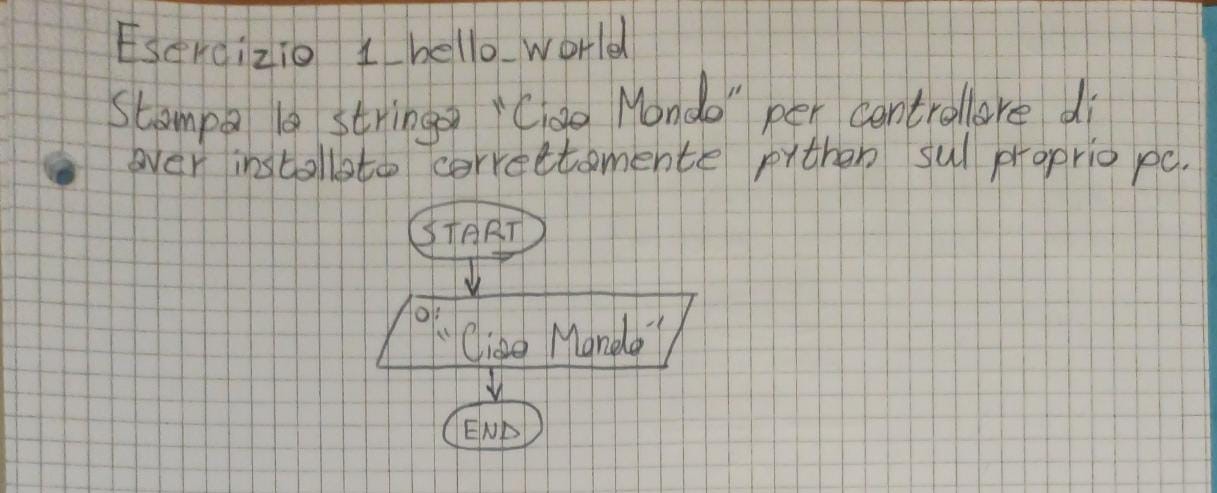 Esercizio 1_hello_world
Stampa la stringa "Ciao Mondo" per controllare di
aver installato correttamente python sul proprio pc.
START
O: "Ciao Mondo"
END